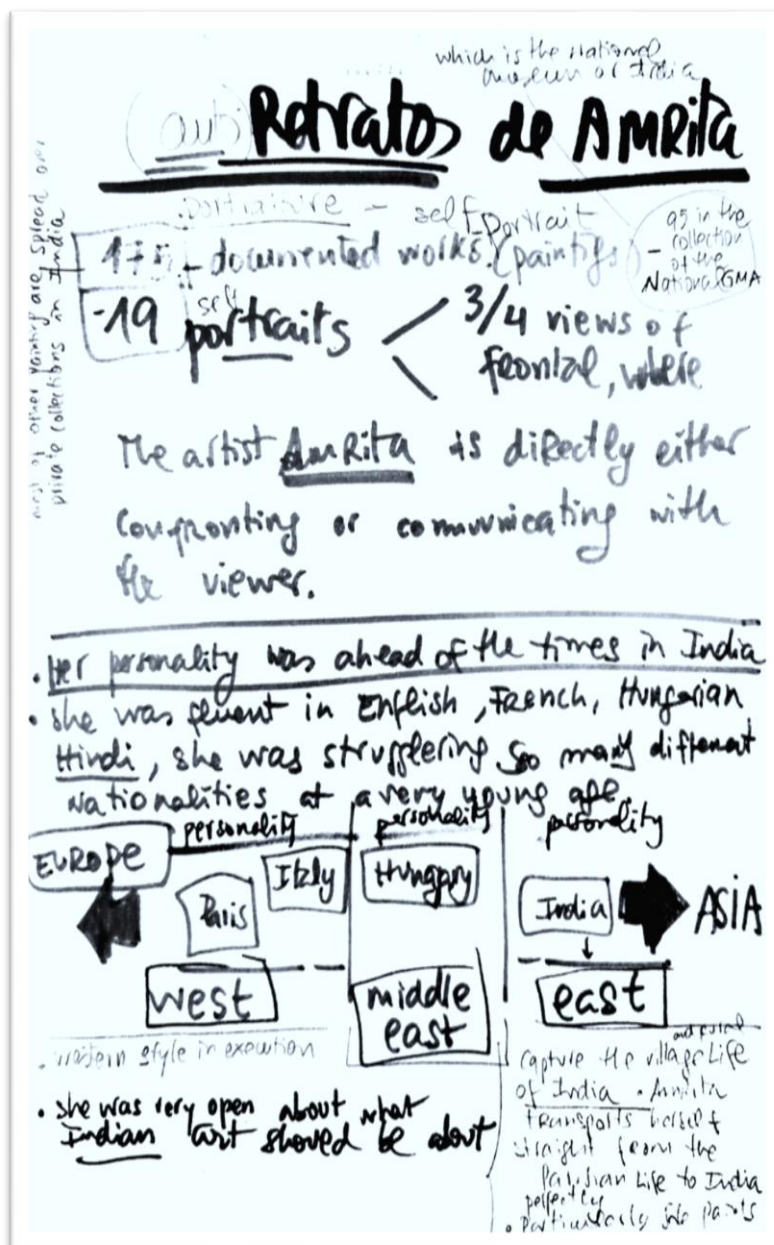 which is the National
museum of India
(auto) Retratos de AMRita
.portraiture - self portrait
175 - documented works. (paintigs)
95 in the
- collection
of the
National GMA
most of other painting are spread over
private collections in India
-19 self portraits
3/4 views of
frontal, where
The artist AmRita is directly either
confronting or communicating with
the viewer.
. Her personality was ahead of the times in India
• she was fluent in English, French, Hungarian
Hindi, she was strugglering so many different
Nationalities at a very young age
personality personality personality
EUROPE
Paris Itzly Hungary India ASiA
west middle east
east
. western style in execution
• she was very open about what
Indian art should be about
capture the village Life
of India . Amrita
transports herself
straight from the
Parisian Life to India
perfectly
• Particularly she paints